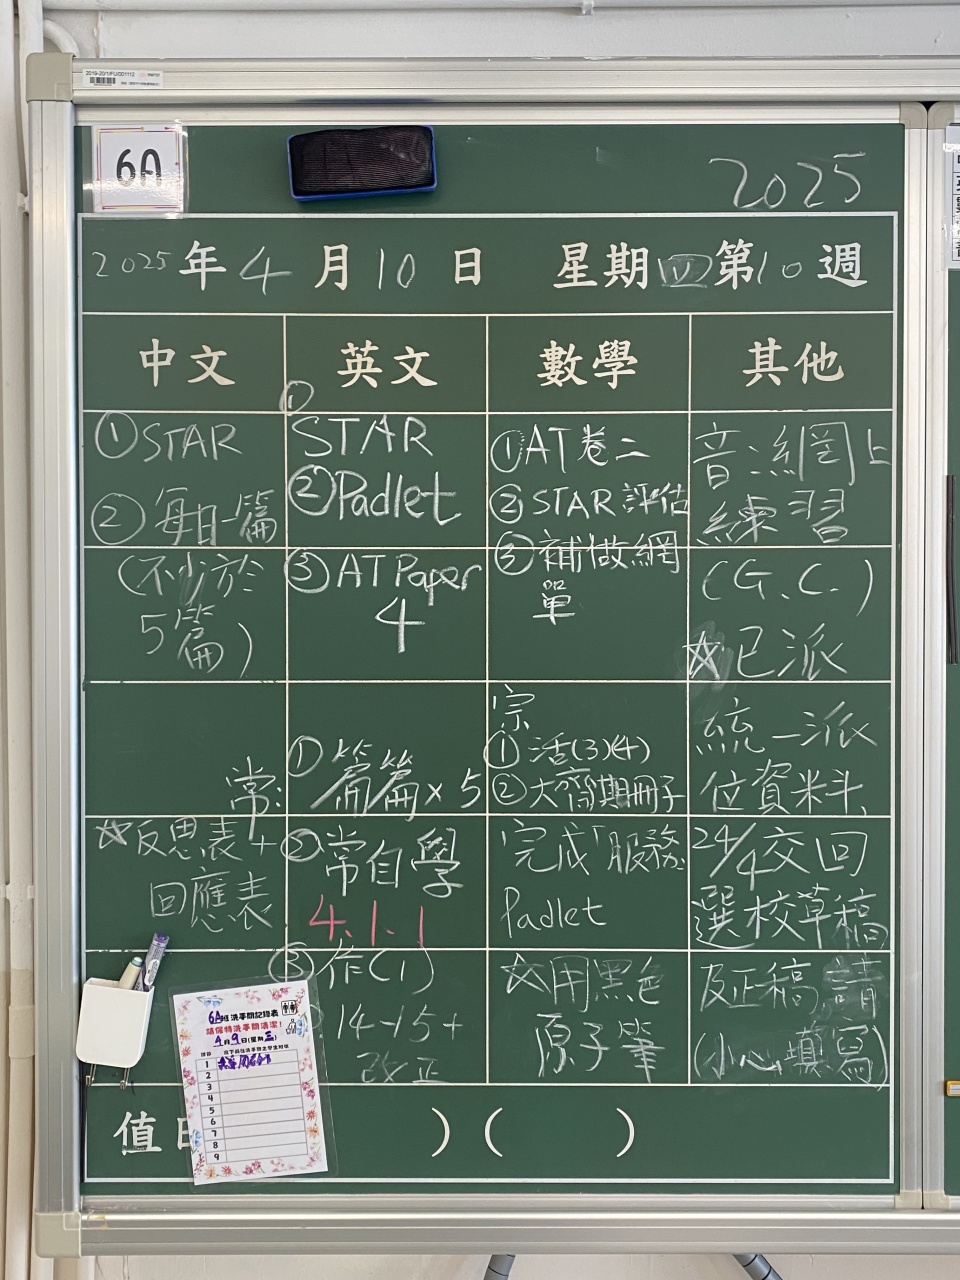 2019-20/1/FU/001112
6A
2025
2025年4月10日 星期四 第10週
中文
①STAR
②每日一篇
(不少於
5篇)
常:
☆反思表+
回應表
英文
①
STAR
②Padlet
③AT Paper
4
①篇篇×5
②常自學
4.1.1
③作(1)
14-15+
改正
數學
①AT卷二
②STAR評估
③補做網
單
宗
①活(3)(4)
②大齊期冊子
完成「服務」
Padlet
☆用黑色
原子筆
其他
音:網上
練習
(G.C.)
☆已派
統一派
位資料
24/4交回
選校草稿
及正稿請
(小心填寫)
值日
) ( )
6A班洗手間記錄表
請保持洗手間清潔!
4月9日(星期三)
1
2
3
4
5
6
7
8
9